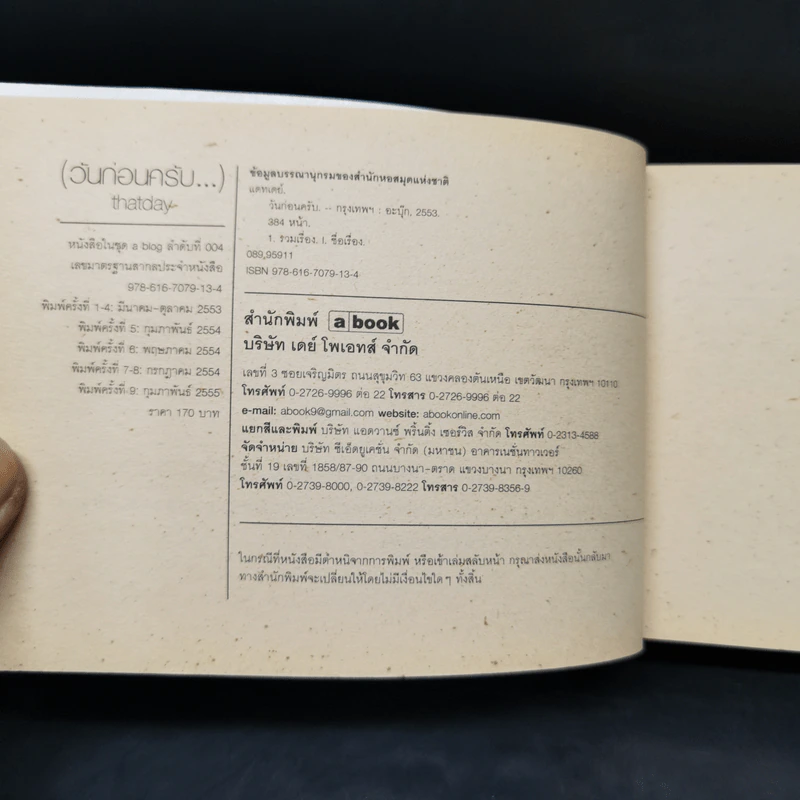 (วันก่อนครับ...)
thatday
หนังสือในชุด a blog ลำดับที่ 004
เลขมาตรฐานสากลประจำหนังสือ
978-616-7079-13-4
พิมพ์ครั้งที่ 1-4: มีนาคม-ตุลาคม 2553
พิมพ์ครั้งที่ 5: กุมภาพันธ์ 2554
พิมพ์ครั้งที่ 6: พฤษภาคม 2554
พิมพ์ครั้งที่ 7-8: กรกฎาคม 2554
พิมพ์ครั้งที่ 9: กุมภาพันธ์ 2555
ราคา 170 บาท
ข้อมูลบรรณานุกรมของสำนักหอสมุดแห่งชาติ
แดทเดย์.
วันก่อนครับ. -- กรุงเทพฯ : อะบุ๊ก, 2553.
384 หน้า.
1. รวมเรื่อง. I. ชื่อเรื่อง.
089,95911
ISBN 978-616-7079-13-4
สำนักพิมพ์ a book
บริษัท เดย์ โพเอทส์ จำกัด
เลขที่ 3 ซอยเจริญมิตร ถนนสุขุมวิท 63 แขวงคลองตันเหนือ เขตวัฒนา กรุงเทพฯ 10110
โทรศัพท์ 0-2726-9996 ต่อ 22 โทรสาร 0-2726-9996 ต่อ 22
e-mail: abook9@gmail.com website: abookonline.com
แยกสีและพิมพ์ บริษัท แอดวานซ์ พริ้นติ้ง เซอร์วิส จำกัด โทรศัพท์ 0-2313-4588
จัดจำหน่าย บริษัท ซีเอ็ดยูเคชั่น จำกัด (มหาชน) อาคารเนชั่นทาวเวอร์
ชั้นที่ 19 เลขที่ 1858/87-90 ถนนบางนา-ตราด แขวงบางนา กรุงเทพฯ 10260
โทรศัพท์ 0-2739-8000, 0-2739-8222 โทรสาร 0-2739-8356-9
ในกรณีที่หนังสือมีตำหนิจากการพิมพ์ หรือเข้าเล่มสลับหน้า กรุณาส่งหนังสือนั้นกลับมา
ทางสำนักพิมพ์จะเปลี่ยนให้โดยไม่มีเงื่อนไขใด ๆ ทั้งสิ้น